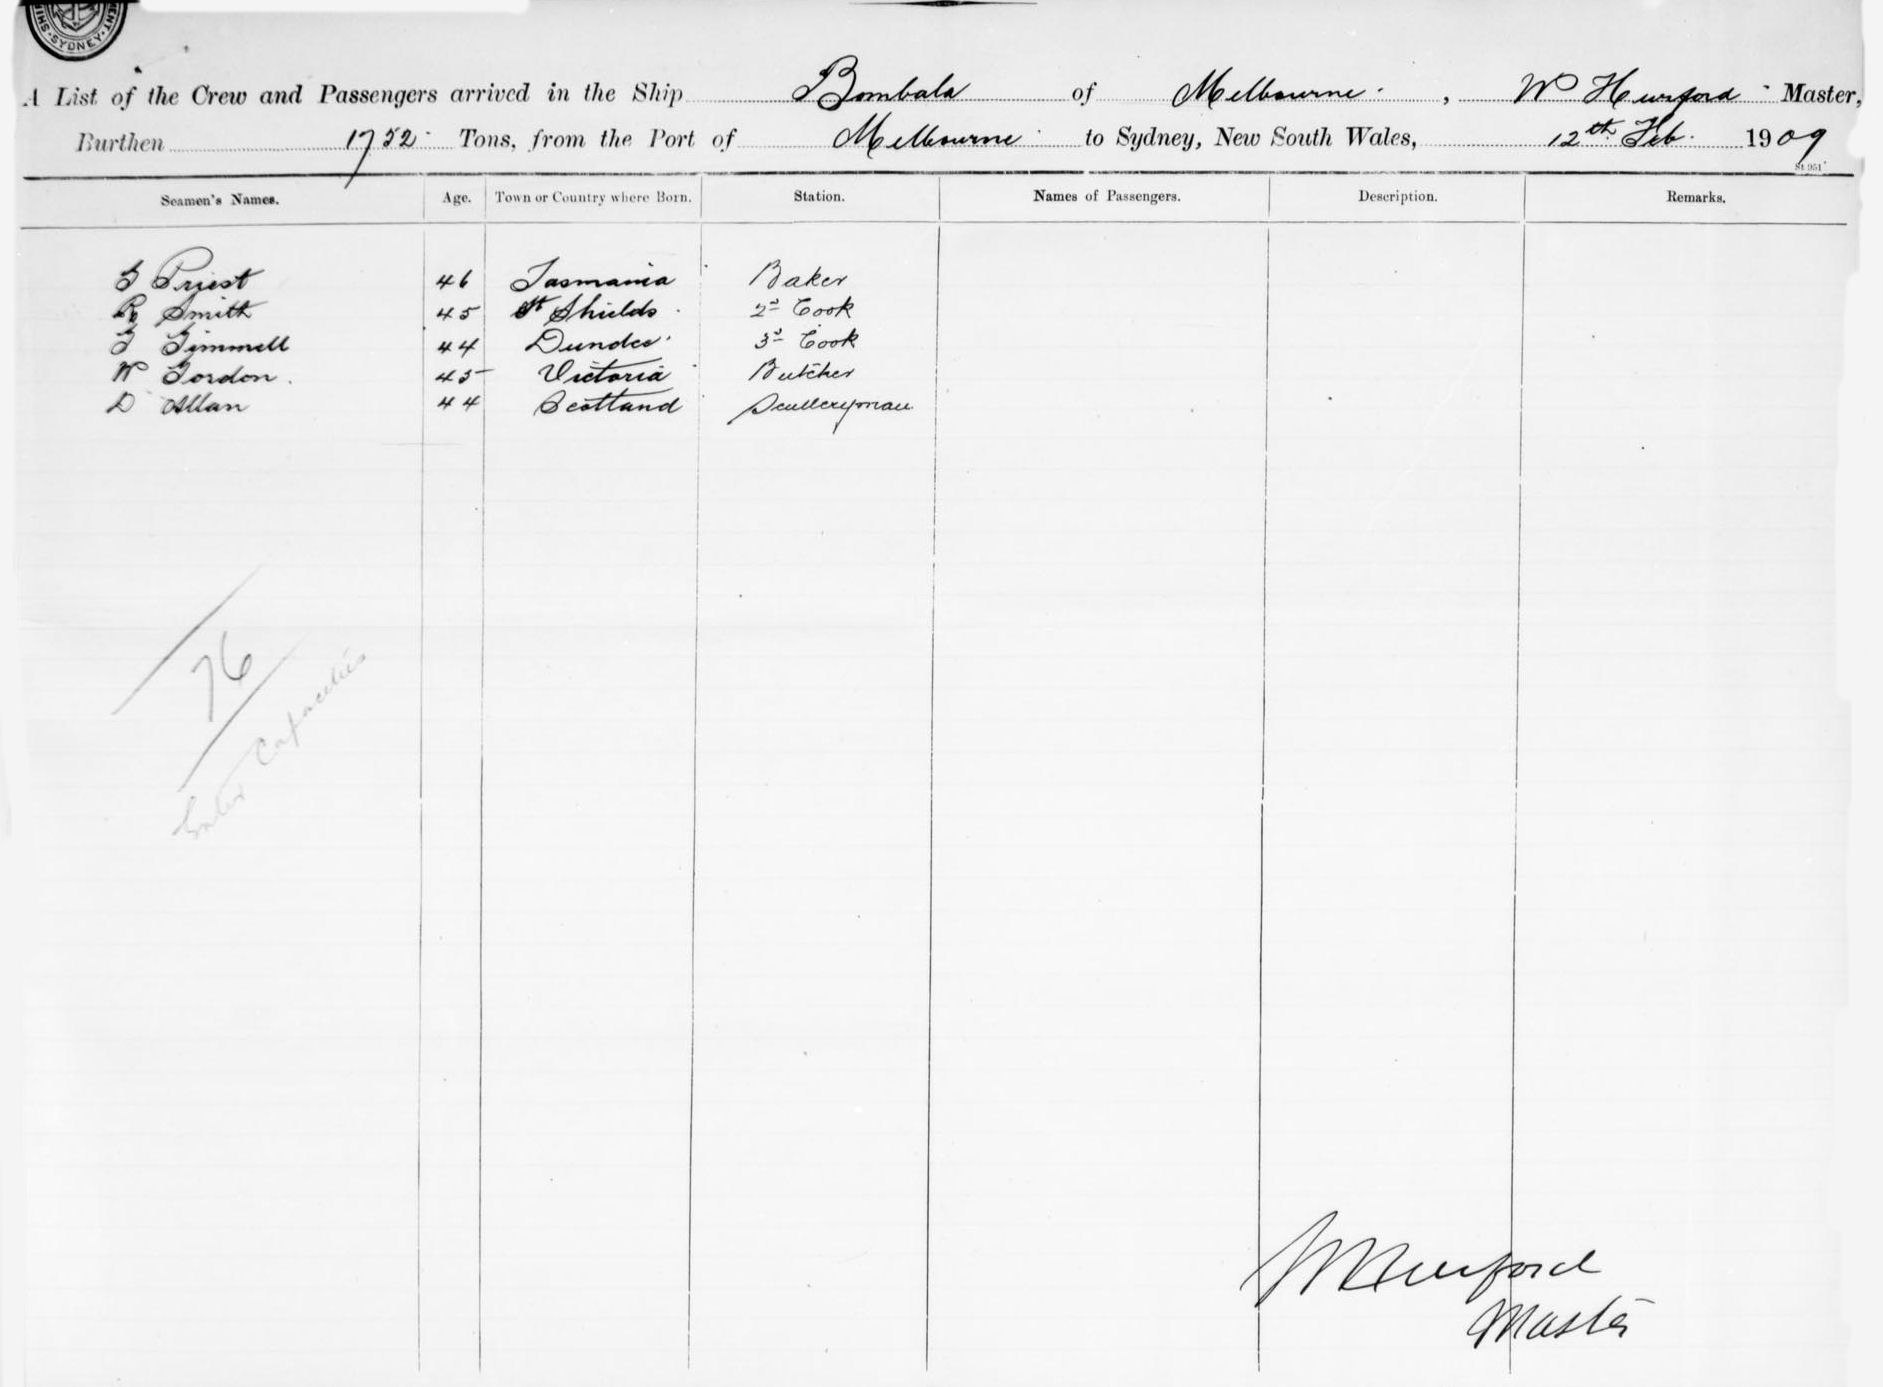 SYDNEY
A List of the Crew and Passengers arrived in the Ship Bombala of Melbourne, W Hurford Master,
Burthen 1752 Tons, from the Port of Melbourne to Sydney, New South Wales, 12th Feb. 1909
St 951
Seamen's Names. Age. Town or Country where Born. Station. Names of Passengers. Description. Remarks.
G Priest 46 Tasmania Baker
R Smith 45 St Shields 2d Cook
G Gimmell 44 Dundee 3d Cook
W Gordon. 45 Victoria Butcher
D Allan 44 Scotland Sculleryman
76
Enter Capacities
W Hurford
Master